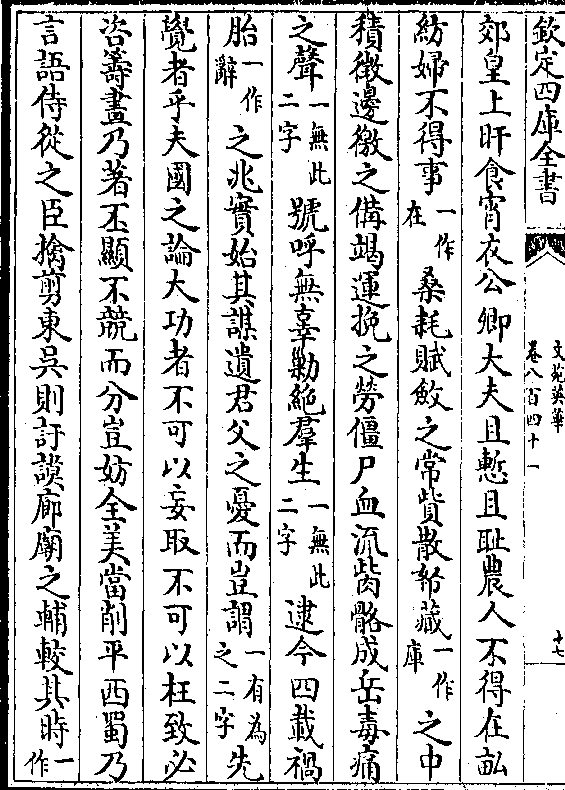 欽定四庫全書
文苑英華
卷八百四十一
十七
郊皇上旰食宵衣公卿大夫且慙且耻農人不得在畝
紡婦不得事一作在桑耗賦斂之常貲散帑藏一作庫之中
積徵邊徼之備竭運挽之勞僵尸血流胔骼成岳毒痛
之聲一無此二字號呼無辜勦絶羣生一無此二字逮今四載禍
胎一作辭之兆實始其謀遺君父之憂而豈謂一有為之二字先
覺者乎夫國之論大功者不可以妄取不可以枉致必
咨籌畫乃著丕顯不競而分豈妨全美當削平西蜀乃
言語侍從之臣擒剪東吳則訏謨廊廟之輔較其時一作